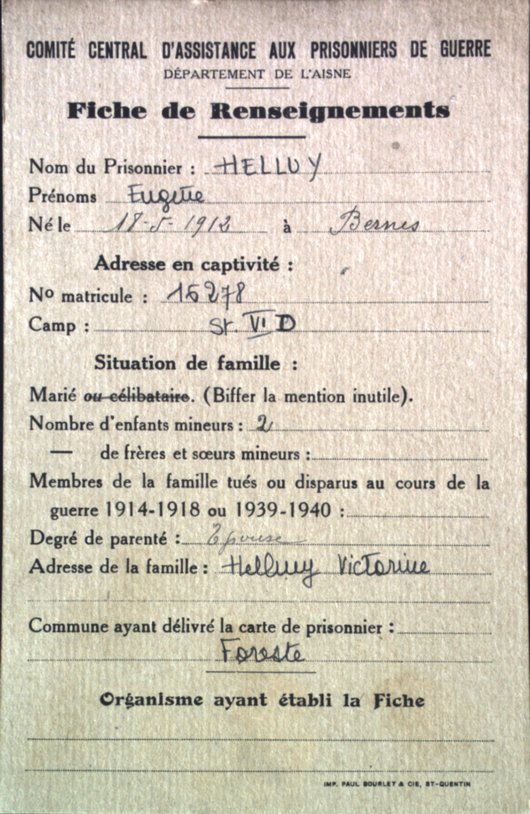 COMITÉ CENTRAL D'ASSISTANCE AUX PRISONNIERS DE GUERRE
DÉPARTEMENT DE L'AISNE
Fiche de Renseignements
Nom du Prisonnier : HELLUY
Prénoms Eugène
Né le 18-5-1912 à Bernes
Adresse en captivité :
No matricule : 15278
Camp : St VI D
Situation de famille :
Marié ou célibataire. (Biffer la mention inutile).
Nombre d'enfants mineurs : 2
— de frères et sœurs mineurs :
Membres de la famille tués ou disparus au cours de la
guerre 1914-1918 ou 1939-1940 :
Degré de parenté : Epouse
Adresse de la famille : Helluy Victorine
Commune ayant délivré la carte de prisonnier :
Foreste
Organisme ayant établi la Fiche
IMP. PAUL BOURLET & CIE, ST-QUENTIN